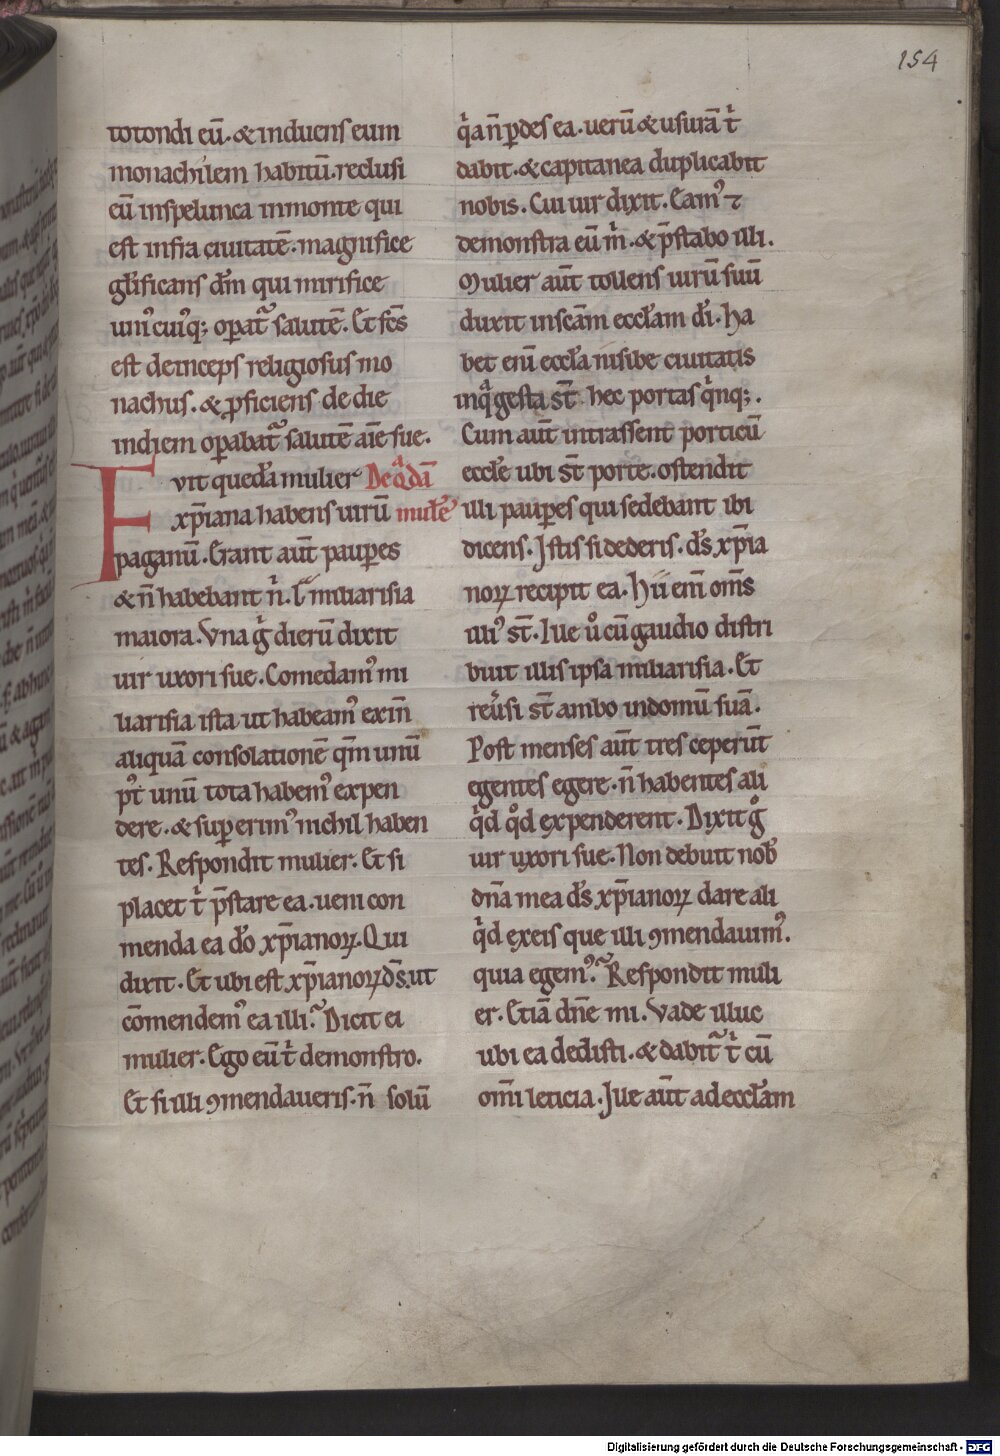 154
totondi eū. & induens eum
monachilem habitū. reclusi
eū inspelunca inmonte qui
est infra ciuitatē. magnifice
glīficans dm̄ qui mirifice
uniꝰcuiꝰq; oꝑat᷑ salutē. Et fcs̄
est deinceps religiosus mo
nachus. & ꝓficiens de die
indiem oꝑabat᷑ salutē aīe sue.
Fvit quedā mulier De qͣdā
xp̄iana habens uirū mulīe
paganū. Erant aūt pauꝑes
& n̄ habebant n̄. l᷑ miliarisia
maiora. Vna g̊ dierū dixit
uir uxori sue. Comedamꝰ mi
liarisia ista ut habeamꝰ exin̄
aliquā consolationē qm̄ unū
p᷑t unū tota habemꝰ expen
dere. & suꝑerimꝰ nichil haben
tes. Respondit mulier. Et si
placet t̄ p̄stare ea. ueni con
menda ea do xp̄ianoꝝ. Qui
dixit. Et ubi est xp̄ianoꝝ ds̄. ut
cōmendemꝰ ea illi? Dicit ei
mulier. Ego eū t̄ demonstro.
Et si illi ꝯmendaueris. n̄ solū
q̄a n̄ ꝑdes ea. uerū & usurā t̄
dabit. & capitanea duplicabit
nobis. Cui uir dixit. Eamꝰ ⁊
demonstra eū m̄. & p̄stabo illi.
Mulier aūt tollens uirū suū
duxit insc̄am eccl̄am dī. ha
bet enī eccl̄a nisibe ciuitatis
inqͣ gesta st̄ hec portas qⁱnq;.
Cum aūt intrassent porticū
eccl̄e ubi st̄ porte. ostendit
illi pauꝑes qui sedebant ibi
dicens. Istis si dederis. ds̄ xp̄ia
noꝝ recipit ea. Hii em̄ om̄s
illiꝰ st̄. Iue ů cū gaudio distri
buit illis ipsa miliarisia. Et
reūsi st̄ ambo indomū suā.
Post menses aūt tres ceperūt
egentes egere. n̄ habentes ali
qⁱd qͦd expenderent. Dixit g̊
uir uxori sue. Non debuit nob̄
dn̄a mea ds̄ xp̄ianoꝝ dare ali
qⁱd exeis que illi ꝯmendauimꝰ.
quia egemꝰ? Respondit muli
er. Etiā dn̄e mi. Vade illuc
ubi ea dedisti. & dabit᷑ t̄ cū
om̄i leticia. Iue aūt ad eccl̄am
Digitalisierung gefördert durch die Deutsche Forschungsgemeinschaft - DFG